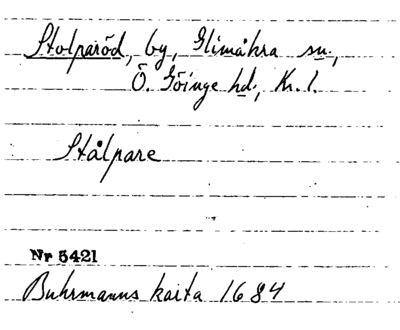 Stolparöd, by, Glimåkra sn.,
Ö. Göinge hd., Kr. l.
Stålpare
Nr 5421
Buhrmanns karta 1684